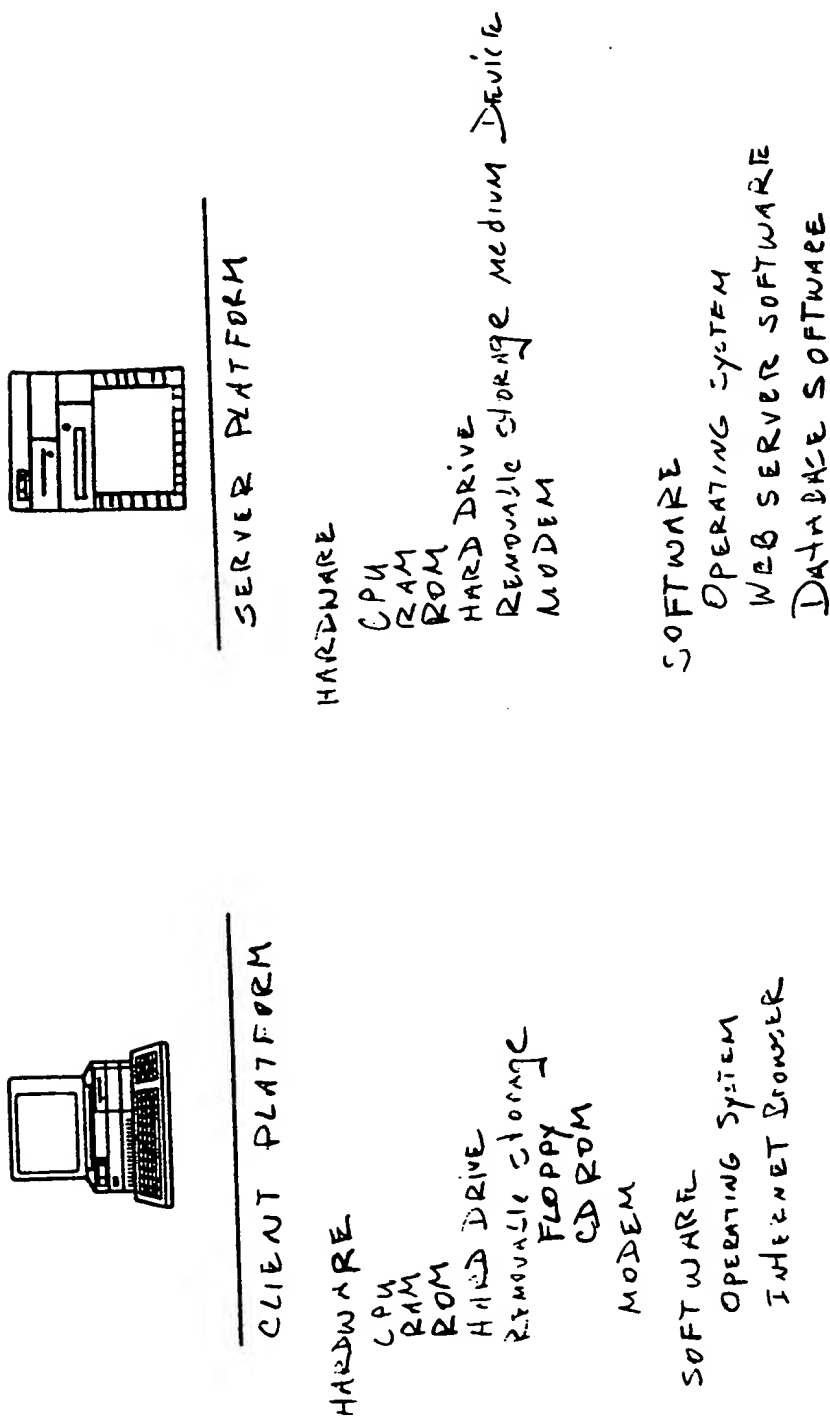 CLIENT PLATFORM
HARDWARE
CPU
RAM
ROM
HARD DRIVE
Removable storage
FLOPPY
CD ROM
MODEM
SOFTWARE
OPERATING SYSTEM
INTERNET BROWSER
SERVER PLATFORM
HARDWARE
CPU
RAM
ROM
HARD DRIVE
Removable storage medium Device
MODEM
SOFTWARE
OPERATING SYSTEM
WEB SERVER SOFTWARE
DATABASE SOFTWARE